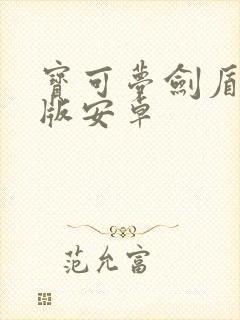 寶可夢劍盾
版安卓
范允富